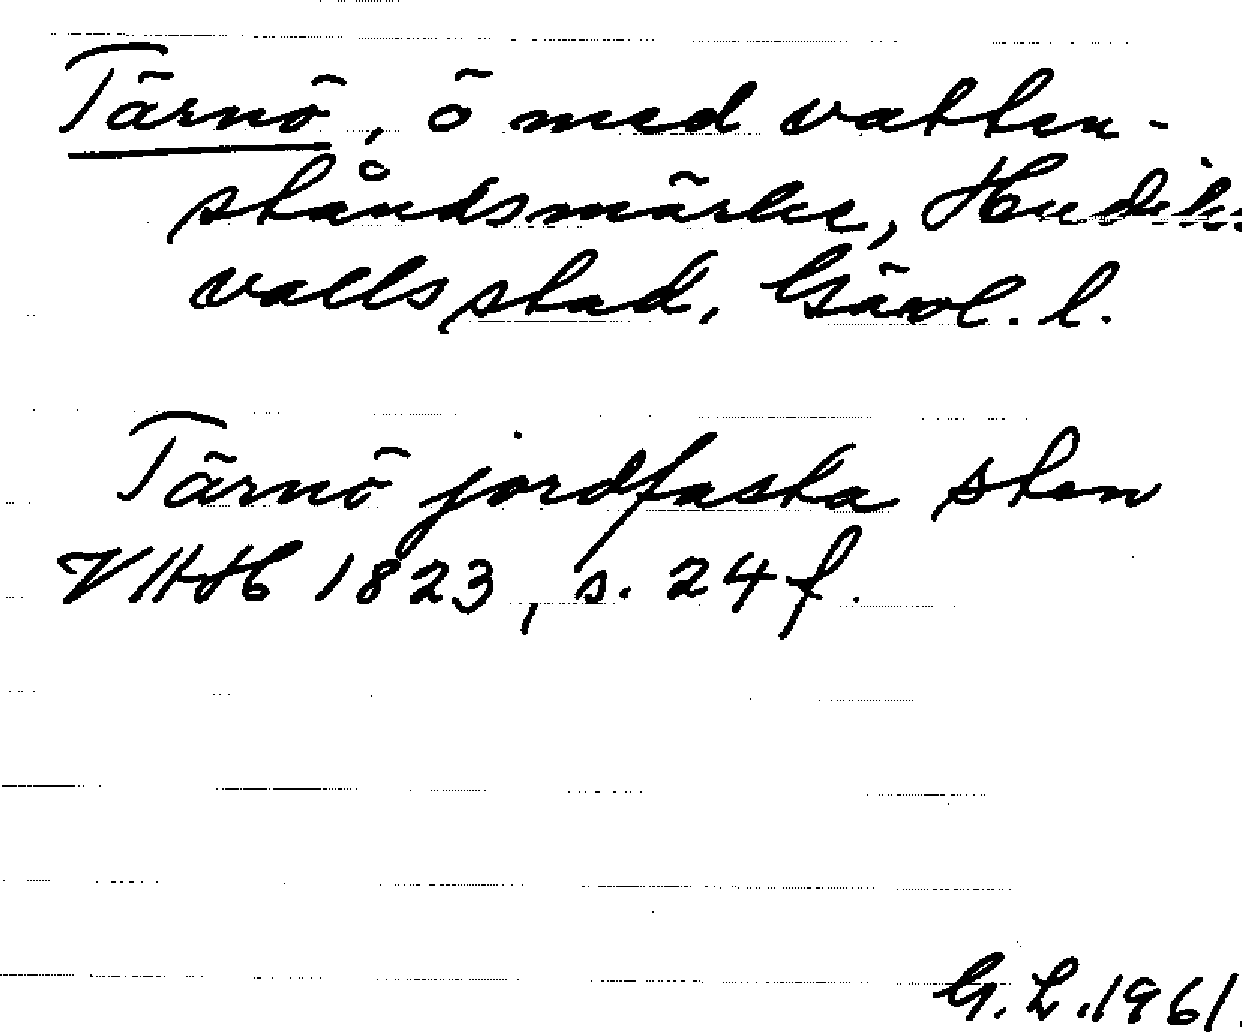 Tärnö, ö med vatten-
ståndsmärke, Hudiks-
valls stad, Gävl. l.
Tärnö jordfasta sten
VHAH 1823, s. 24 f.
G. L. 1961.